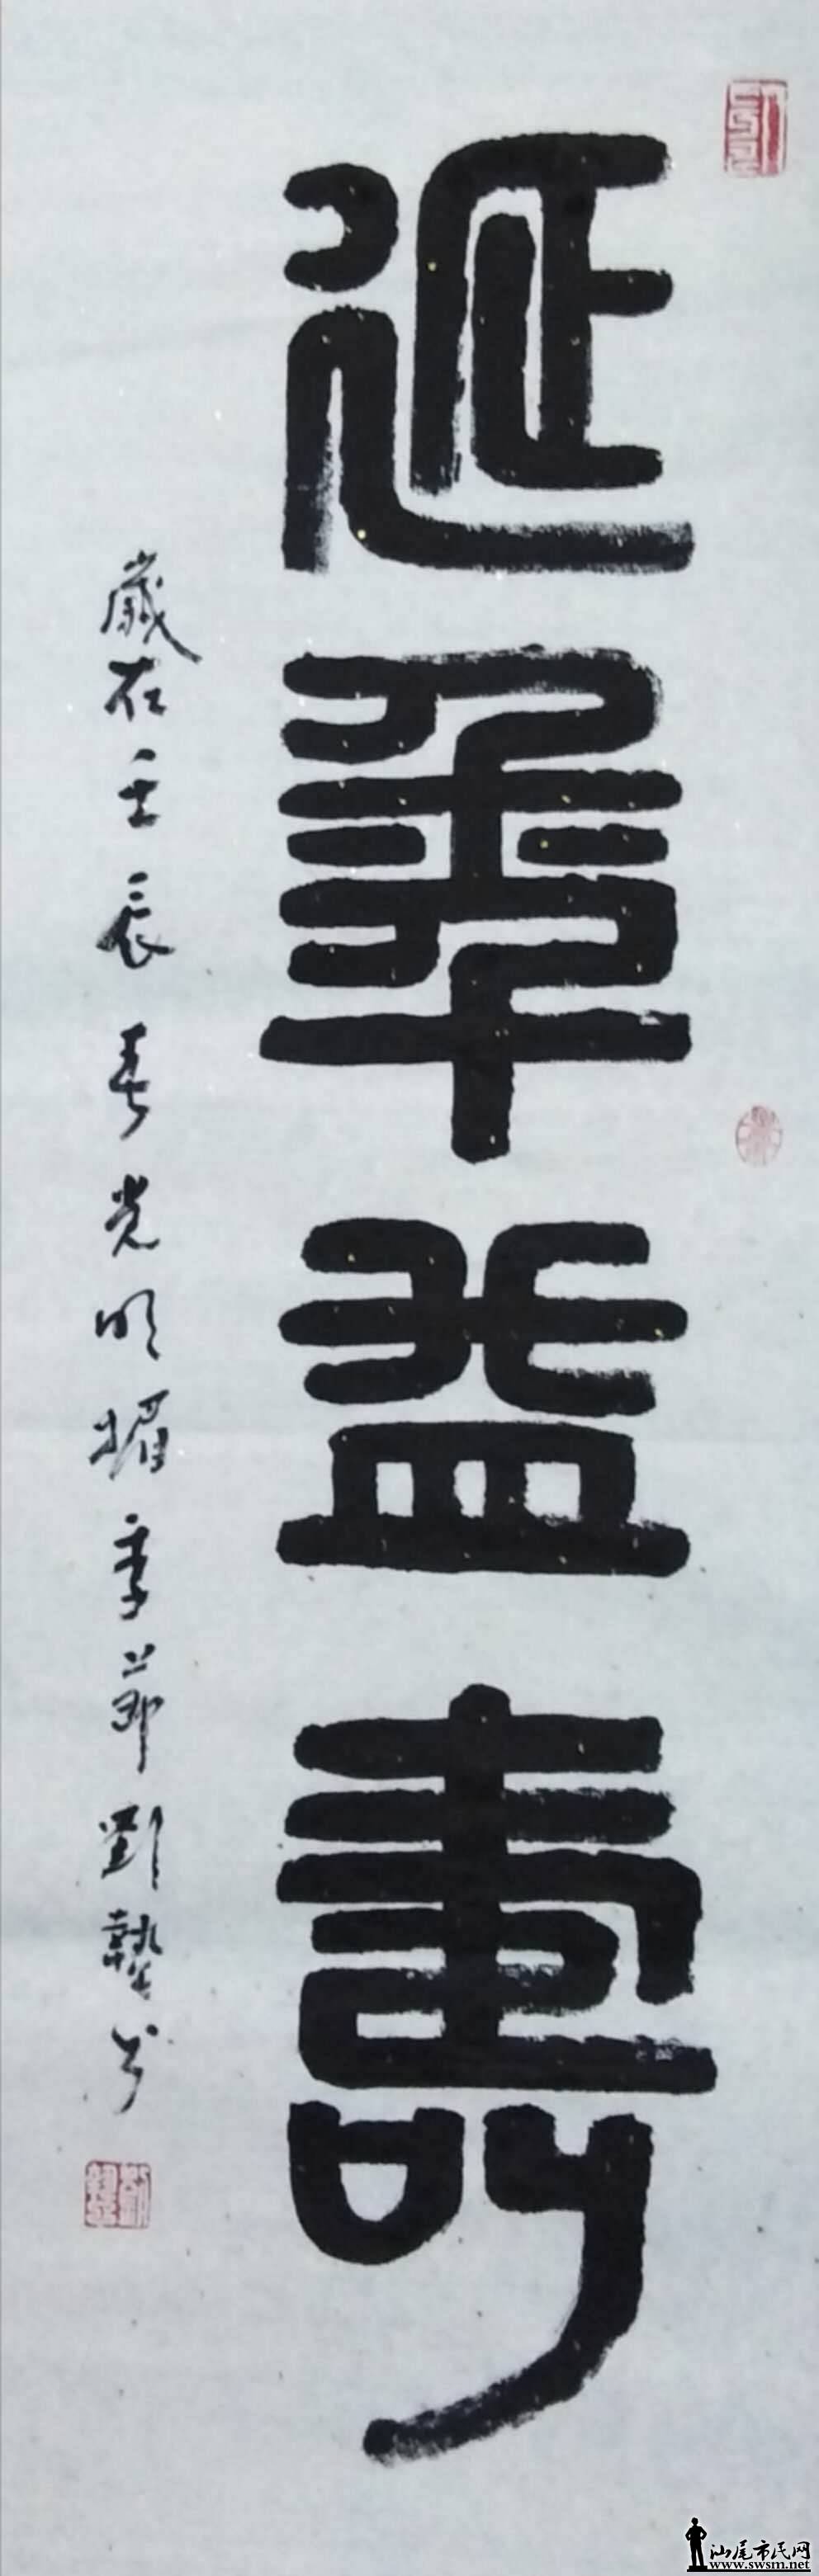 延年益壽
歲在壬辰春光明媚季節劉墊書
汕尾市民网
www.swsm.net